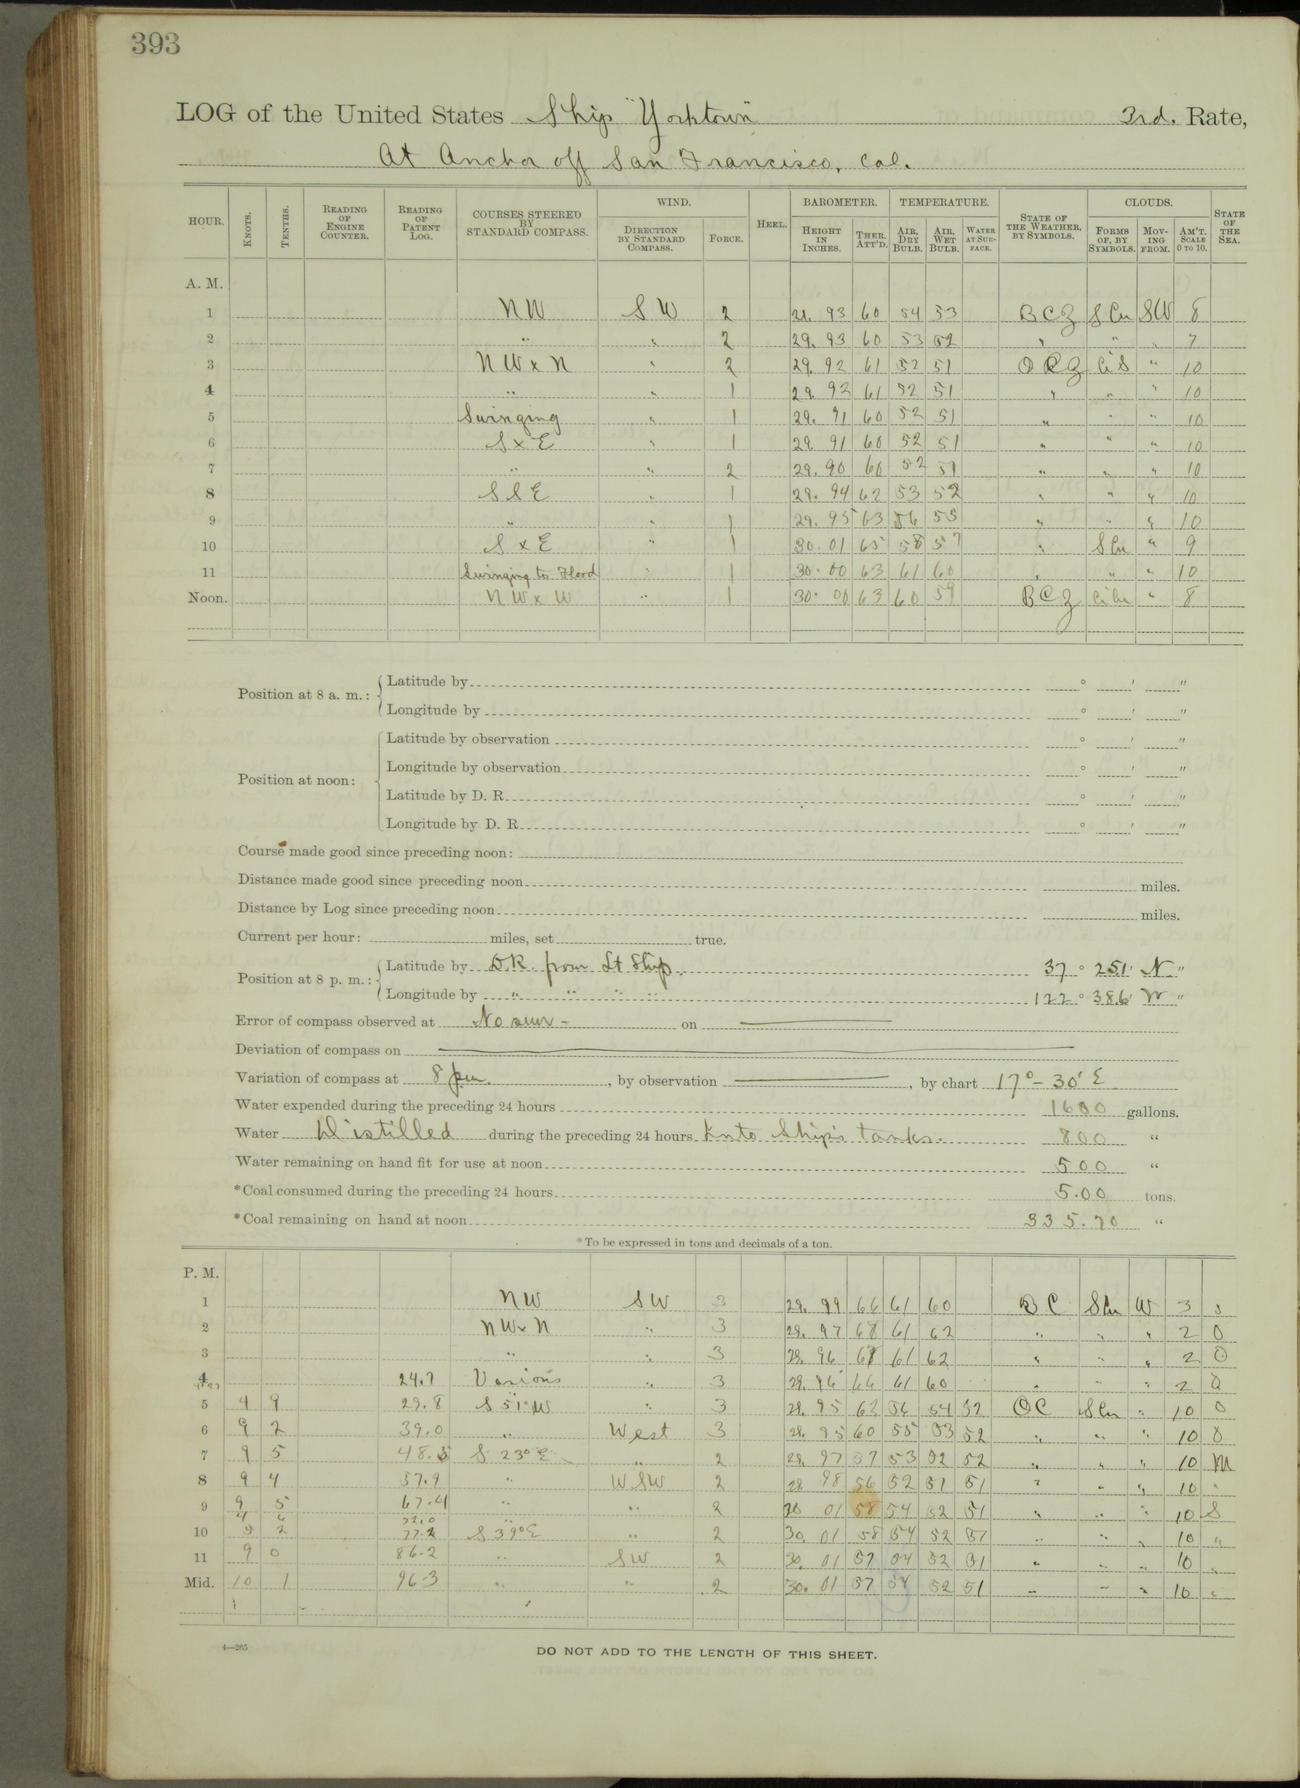 393
LOG of the United States Ship "Yorktown" 3rd. Rate,
At Anchor off San Francisco, Cal.
HOUR. KNOTS. TENTHS. READING OF ENGINE COUNTER. READING OF PATENT LOG. COURSES STEERED BY STANDARD COMPASS. WIND. DIRECTION BY STANDARD COMPASS. FORCE. HEEL. BAROMETER. HEIGHT IN INCHES. THER. ATT'D. TEMPERATURE. AIR, DRY BULB. AIR, WET BULB. WATER AT SURFACE. STATE OF THE WEATHER, BY SYMBOLS. CLOUDS. FORMS OF, BY SYMBOLS. MOVING FROM. AM'T. SCALE 0 TO 10. STATE OF THE SEA.
A. M.
1 NW SW 2 29. 93 60 54 53 BCZ SCu SW 8
2 " " 2 29. 93 60 53 52 " " " 7
3 NW x N " 2 29. 92 61 52 51 OCZ CiS " 10
4 " " 1 29. 92 61 52 51 " " " 10
5 Swinging " 1 29. 91 60 52 51 " " " 10
6 S x E " 1 29 91 60 52 51 " " " 10
7 " " 2 29. 90 60 52 51 " " " 10
8 SSE " 1 29. 94 62 53 52 " " " 10
9 " " 1 29. 95 63 56 55 " " " 10
10 S x E " 1 30. 01 65 58 57 " SCu " 9
11 Swinging to Flood " 1 30. 00 63 61 60 " " " 10
Noon. NW x W " 1 30. 00 63 60 59 BCZ CiCu " 8
Position at 8 a. m.: Latitude by ° ' "
Longitude by ° ' "
Position at noon: Latitude by observation ° ' "
Longitude by observation ° ' "
Latitude by D. R. ° ' "
Longitude by D. R. ° ' "
Course made good since preceding noon:
Distance made good since preceding noon miles.
Distance by Log since preceding noon miles.
Current per hour: miles, set true.
Position at 8 p. m.: Latitude by D.R. from Lt Ship. 37 ° 251 ' N "
Longitude by " " " " 122 ° 386 ' W "
Error of compass observed at No sun - on
Deviation of compass on
Variation of compass at 8 pm. , by observation , by chart 17° - 30' E
Water expended during the preceding 24 hours 1600 gallons.
Water Distilled during the preceding 24 hours Into Ship's tanks. 800 "
Water remaining on hand fit for use at noon 500 "
*Coal consumed during the preceding 24 hours 5.00 tons.
*Coal remaining on hand at noon 335.70 "
*To be expressed in tons and decimals of a ton.
P. M.
1 NW SW 3 29. 99 66 61 60 BC SCu W 3 S
2 NW x N " 3 29. 97 68 61 62 " " " 2 O
3 " " 3 29. 96 68 61 62 " " " 2 O
4 24.7 Various " 3 29. 96 66 61 60 " " " 2 O
5 4 9 29.8 S 51° W " 3 29. 95 62 56 54 52 OC SCu " 10 O
6 9 2 39.0 " West 3 29. 95 60 55 53 52 " " " 10 O
7 9 5 48.5 S 23° E " 2 29. 97 57 53 52 52 " " " 10 M
8 9 4 57.9 " WSW 2 29 98 56 52 51 51 " " " 10 "
9 9 5 67.4 " " 2 30 01 58 54 52 51 " " " 10 S
4 6 72.0
10 5 2 77.2 S 39° E " 2 30. 01 58 54 52 51 " " " 10 "
11 9 0 86.2 " SW 2 30. 01 57 54 52 51 " " " 10 "
Mid. 10 1 96.3 " " 2 30. 01 57 54 52 51 " " " 10 "
4—265
DO NOT ADD TO THE LENGTH OF THIS SHEET.